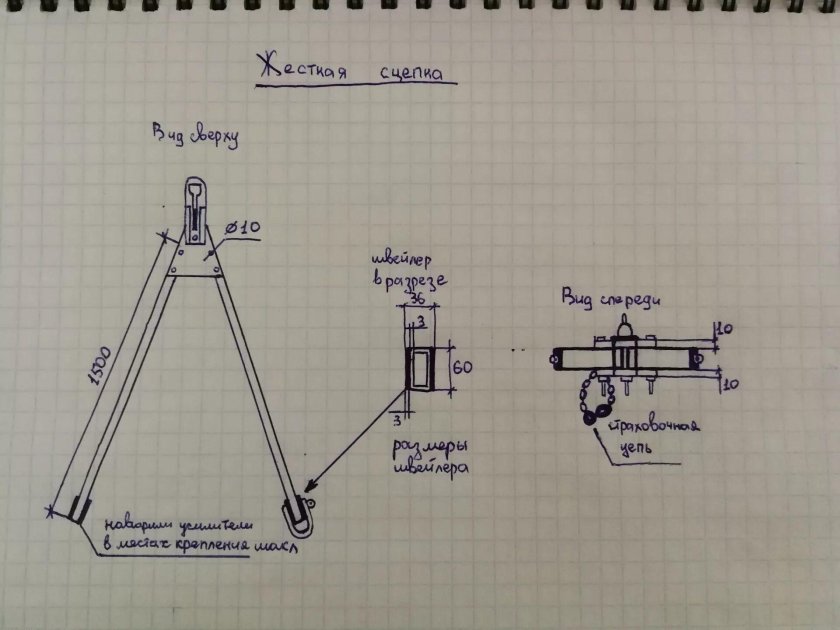 Жесткая сцепка
Вид сверху
Ø10
1500
швейлер
в разрезе
36
3
60
3
размеры
швейлера
наварили усилители
в местах крепления шакл
Вид спереди
10
10
страховочная
цепь